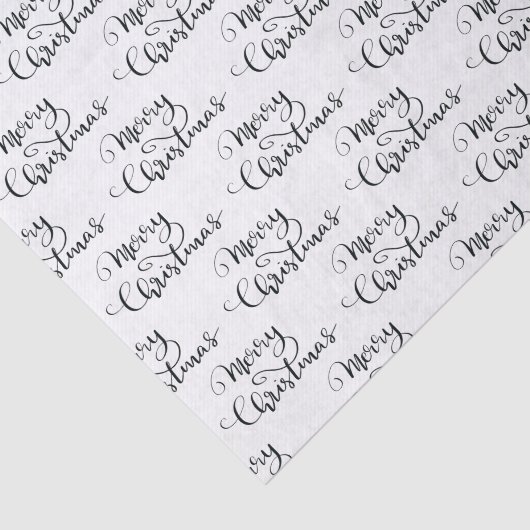 Christmas Christmas Christmas
Merry Merry Merry
Christmas Christmas Christmas
Merry Merry Merry
Christmas Christmas Christmas
Merry
Christmas